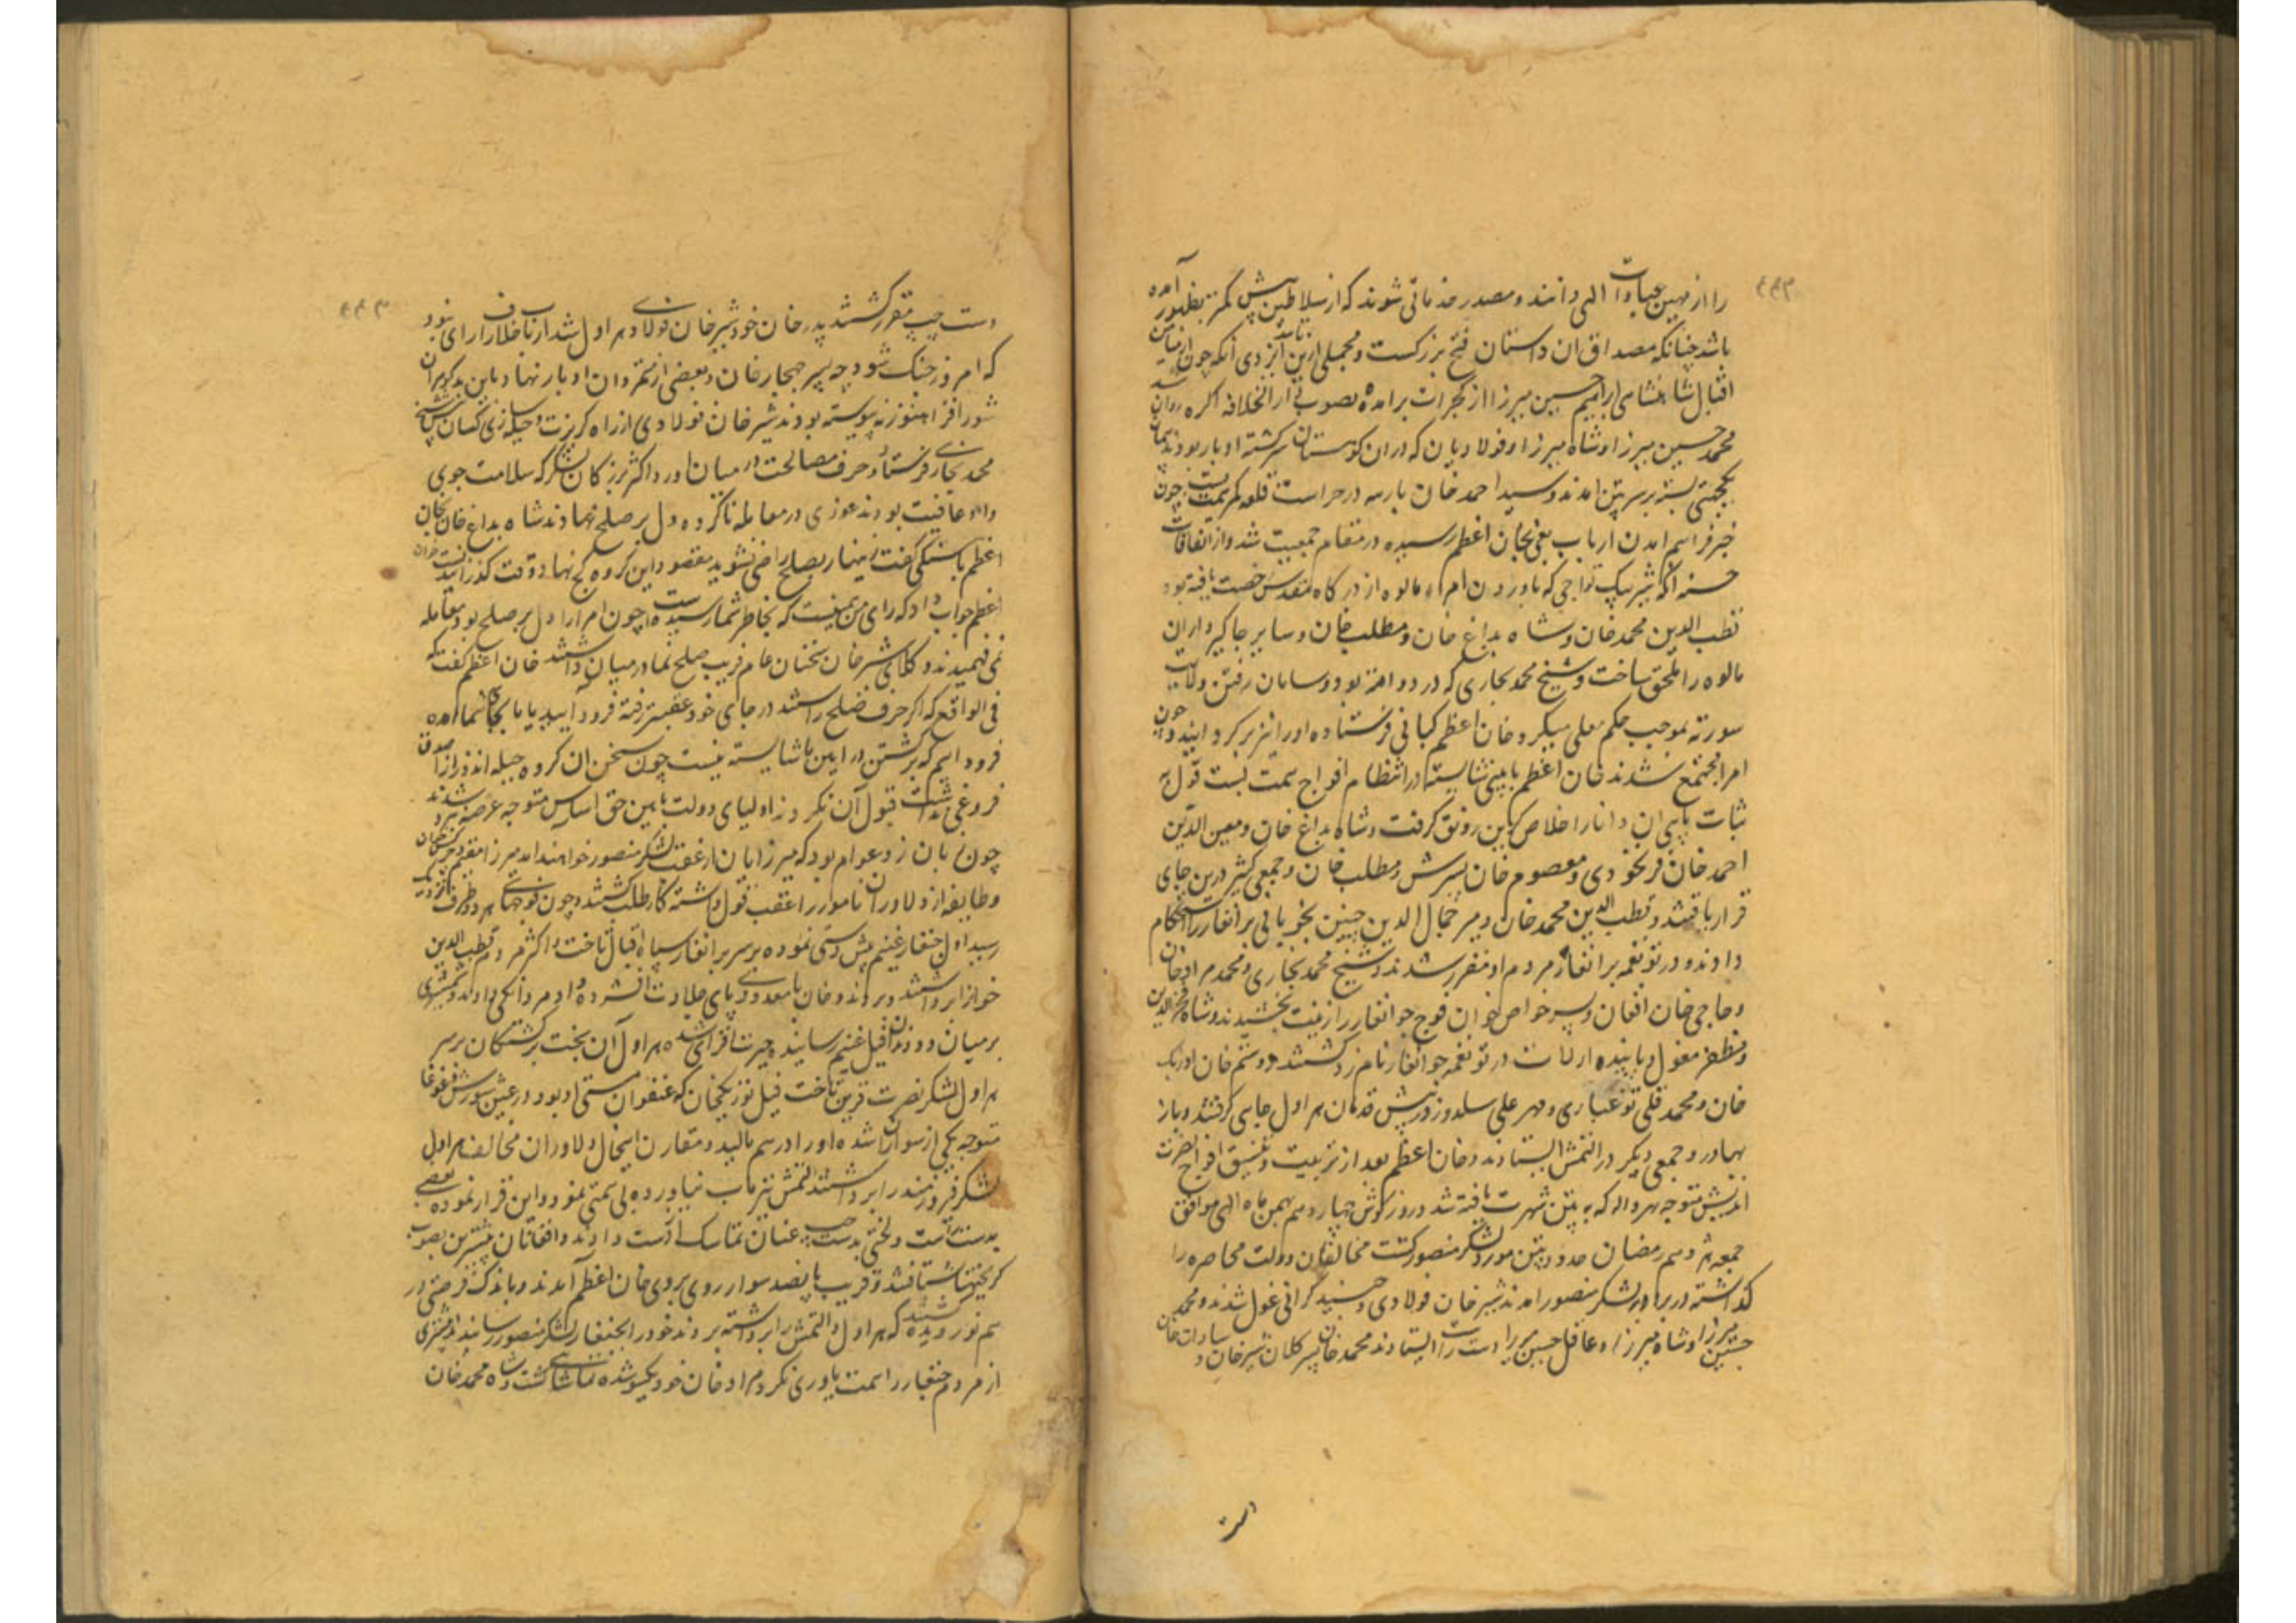 را از مهین عبادات الهی دانند و مصدر خدماتی شوند که از سلاطین پیش کمتر بظهور آمده
باشد چنانکه مصداق ان داستان فتح بزرکست و مجملی ازین تائید ایزدی آنکه چون از
اقبال شاهنشاهی ابراهیم حسین میرزا از کجرات برامده بصوب دار الخلافه اکره روان شد
محمد حسین میرزا و شاه میرزا و فولادیان که دران کوهستان سرکشته ادبار بودند پیمان
یکجهتی بسته بر سر پتن امدند و سید احمد خان بارهه در حراست قلعه کمر همت بست چون
خبر فراهم امدن ارباب بغی بخان اعظم رسیده در مقام جمعیت شد و از اتفاقات
حسنه آنکه شیر بیک تواجی که باوردن امراء مالوه از درکاه مقدس رخصت یافته بود
قطب الدین محمد خان و شاه بداغ خان و مطلب خان و سایر جاکیرداران
مالوه را ملحق ساخت و شیخ محمد بخاری که در دولقه بود و سامان رفتن ولایت
سورته بموجب حکم معلی میکرد خان اعظم کسانی فرستاده او را نیز برکردانید و چون
امرا مجتمع شدند خان اعظم بایینی شایسته در انتظام افواج همت بست قول به
ثبات پایی ان دانا را اخلاص کزین رونق کرفت و شاه بداغ خان و معین الدین
احمد خان فرنخودی و معصوم خان پسرش و مطلب خان و جمعی کثیر درین جای
قرار یافتند و قطب الدین محمد خان و میر جمال الدین حسین برانغار را استحکام
دادند و در توقمه برانغار مردم او مقرر شدند و شیخ محمد بخاری و محمد مراد خان
و حاجی خان افغان و پسر خواص خوان فوج جوانغار را زینت بخشیدند و شاه فخر الدین
و مظفر مغول و پاینده ارلات در توقمه جوانغار نامزد کشتند و دستم خان اورنک
خان و محمد قلی توغبای و مهر علی سلدوز در پیش قدمان هراول جای کرفتند و باز
بهادر و جمعی دیکر در التمش ایستادند و خان اعظم بعد از تربیت و تنسیق افواج نصرت
اندیش متوجه نهرواله که به پتن شهرت یافته شد و روز کوش چهاردهم بهمن ماه الهی موافق
جمعه هژدهم رمضان حدود پتن مورد لشکر منصور کشت مخالفان دولت محاصره را
کذاشته در برابر لشکر منصور امدند شیر خان فولادی و جنید کرانی غول شدند و محمد
حسین میرزا و شاه میرزا و عاقل حسین میرزا دست راست ایستادند محمد خان پسر کلان شیر خان و سادات خان
دست
دست چپ مقرر کشتند پدر خان خود شیر خان فولادی هراول شد ارباب خلاف را رای نبود
که امروز جنک شود چه پسر ججار خان و بعضی از متمردان ادبار نهاد باین بدکوهران
شور افزا هنوز نه پیوسته بودند شیر خان فولادی از راه کربزت و حیله سازی کسان پیش شیخ
محمد بخاری فرستاد و حرف مصالحت در میان اورد اکثر بزرکان لشکر که سلامت جوی
و عافیت بودند غوری در معامله ناکرده دل بر صلح نهادند شاه بداغ خان بخان
اعظم باهستکی کفت زینهار بصلح راضی نشوید مقصود این کروه کج نهاد وقت کذرانیدنست خان
اعظم جواب داد که رای من همینست که بخاطر شما رسیده است چون امرا را دل بر صلح بود معامله
نمی فهمیدند و وکلای شیر خان سخنان عام فریب صلح نما در میان داشتند خان اعظم کفت که
فی الواقع که اکر حرف صلح راستند در جای خود عقبتر رفته فرود آیید یا ما بجای شما امده
فرود اییم که برکشتن در ایین ما شایسته نیست چون سخن ان کروه حیله اندوز از صدق
فروغی نداشت قبول آن نکردند اولیای دولت بایین حق اساس متوجه عرصه نبرد شدند
چون زبان زد عوام بود که میرزایان از عقب لشکر منصور خواهند امد میرزا مقیم و
و طایفه از دلاوران نامور را عقب قول داشته کار طلب کشتند چون فوجهای هر دو طرف نزدیک
رسید اول جنغار غنیم پیش دستی نموده بر سر برانغار سپاه اقبال تاخت و اکثر مردم قطب الدین
خوانرا برداشتند و بردند و خان با معدودی پای جلادت افشرده داد مردانکی دادند و شمشیری
بر میان دو دندان فیل غنیم رسانیده حیرت افزای شد هراول آن بخت برکشتکان بر سر
هراول لشکر نصرت قرین تاخت فیل نورنکخان که عنفوان مستی او بود در عین شورش و غوغا
متوجه یکی از سواران شده او را در هم مالید و مقارن اینحال دلاوران مخالف هراول
لشکر فیروزمند را برداشتند التمش نیز تاب نیاورده بی همتی نمود و این قرار نموده بعضی
بدست راست و لختی بدست چپ عنان تماسک از دست دادند و افغانان پیشترین بصوب
کریختها شتافتند و قریب پانصد سوار روی بروی خان اعظم آمدند و باندک فرصتی در
هم نوردیده کشتند که هراول و التمش را برداشته بردند خود را بجنغار لشکر منصور رسانیدند اکثری
از مردم جنغار را همت یاوری نکرد مراد خان خود یکسو شده تماشائی کشت و شاه محمد خان